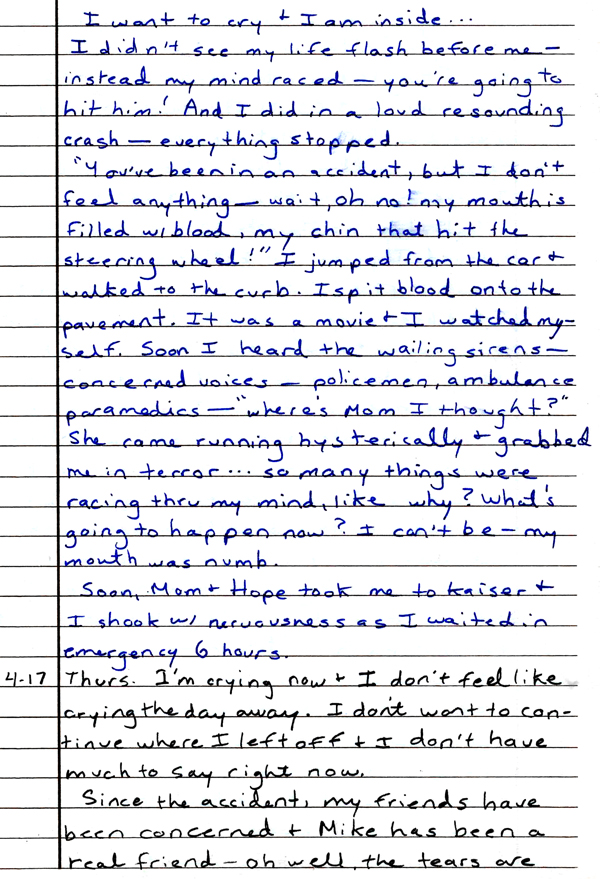 I want to cry + I am inside...
I didn't see my life flash before me -
instead my mind raced - you're going to
hit him! And I did in a loud resounding
crash - everything stopped.
"You've been in an accident, but I don't
feel anything - wait, oh no! my mouth is
filled w/ blood, my chin that hit the
steering wheel!" I jumped from the car +
walked to the curb. I spit blood onto the
pavement. It was a movie + I watched my-
self. Soon I heard the wailing sirens -
concerned voices - policemen, ambulance
paramedics - "where's Mom I thought?"
She came running hysterically + grabbed
me in terror... so many things were
racing thru my mind, like why? What's
going to happen now? I can't be - my
mouth was numb.
Soon, Mom + Hope took me to Kaiser +
I shook w/ nervousness as I waited in
emergency 6 hours.
4-17 Thurs. I'm crying now + I don't feel like
crying the day away. I don't want to con-
tinue where I left off + I don't have
much to say right now.
Since the accident, my friends have
been concerned + Mike has been a
real friend - oh well, the tears are